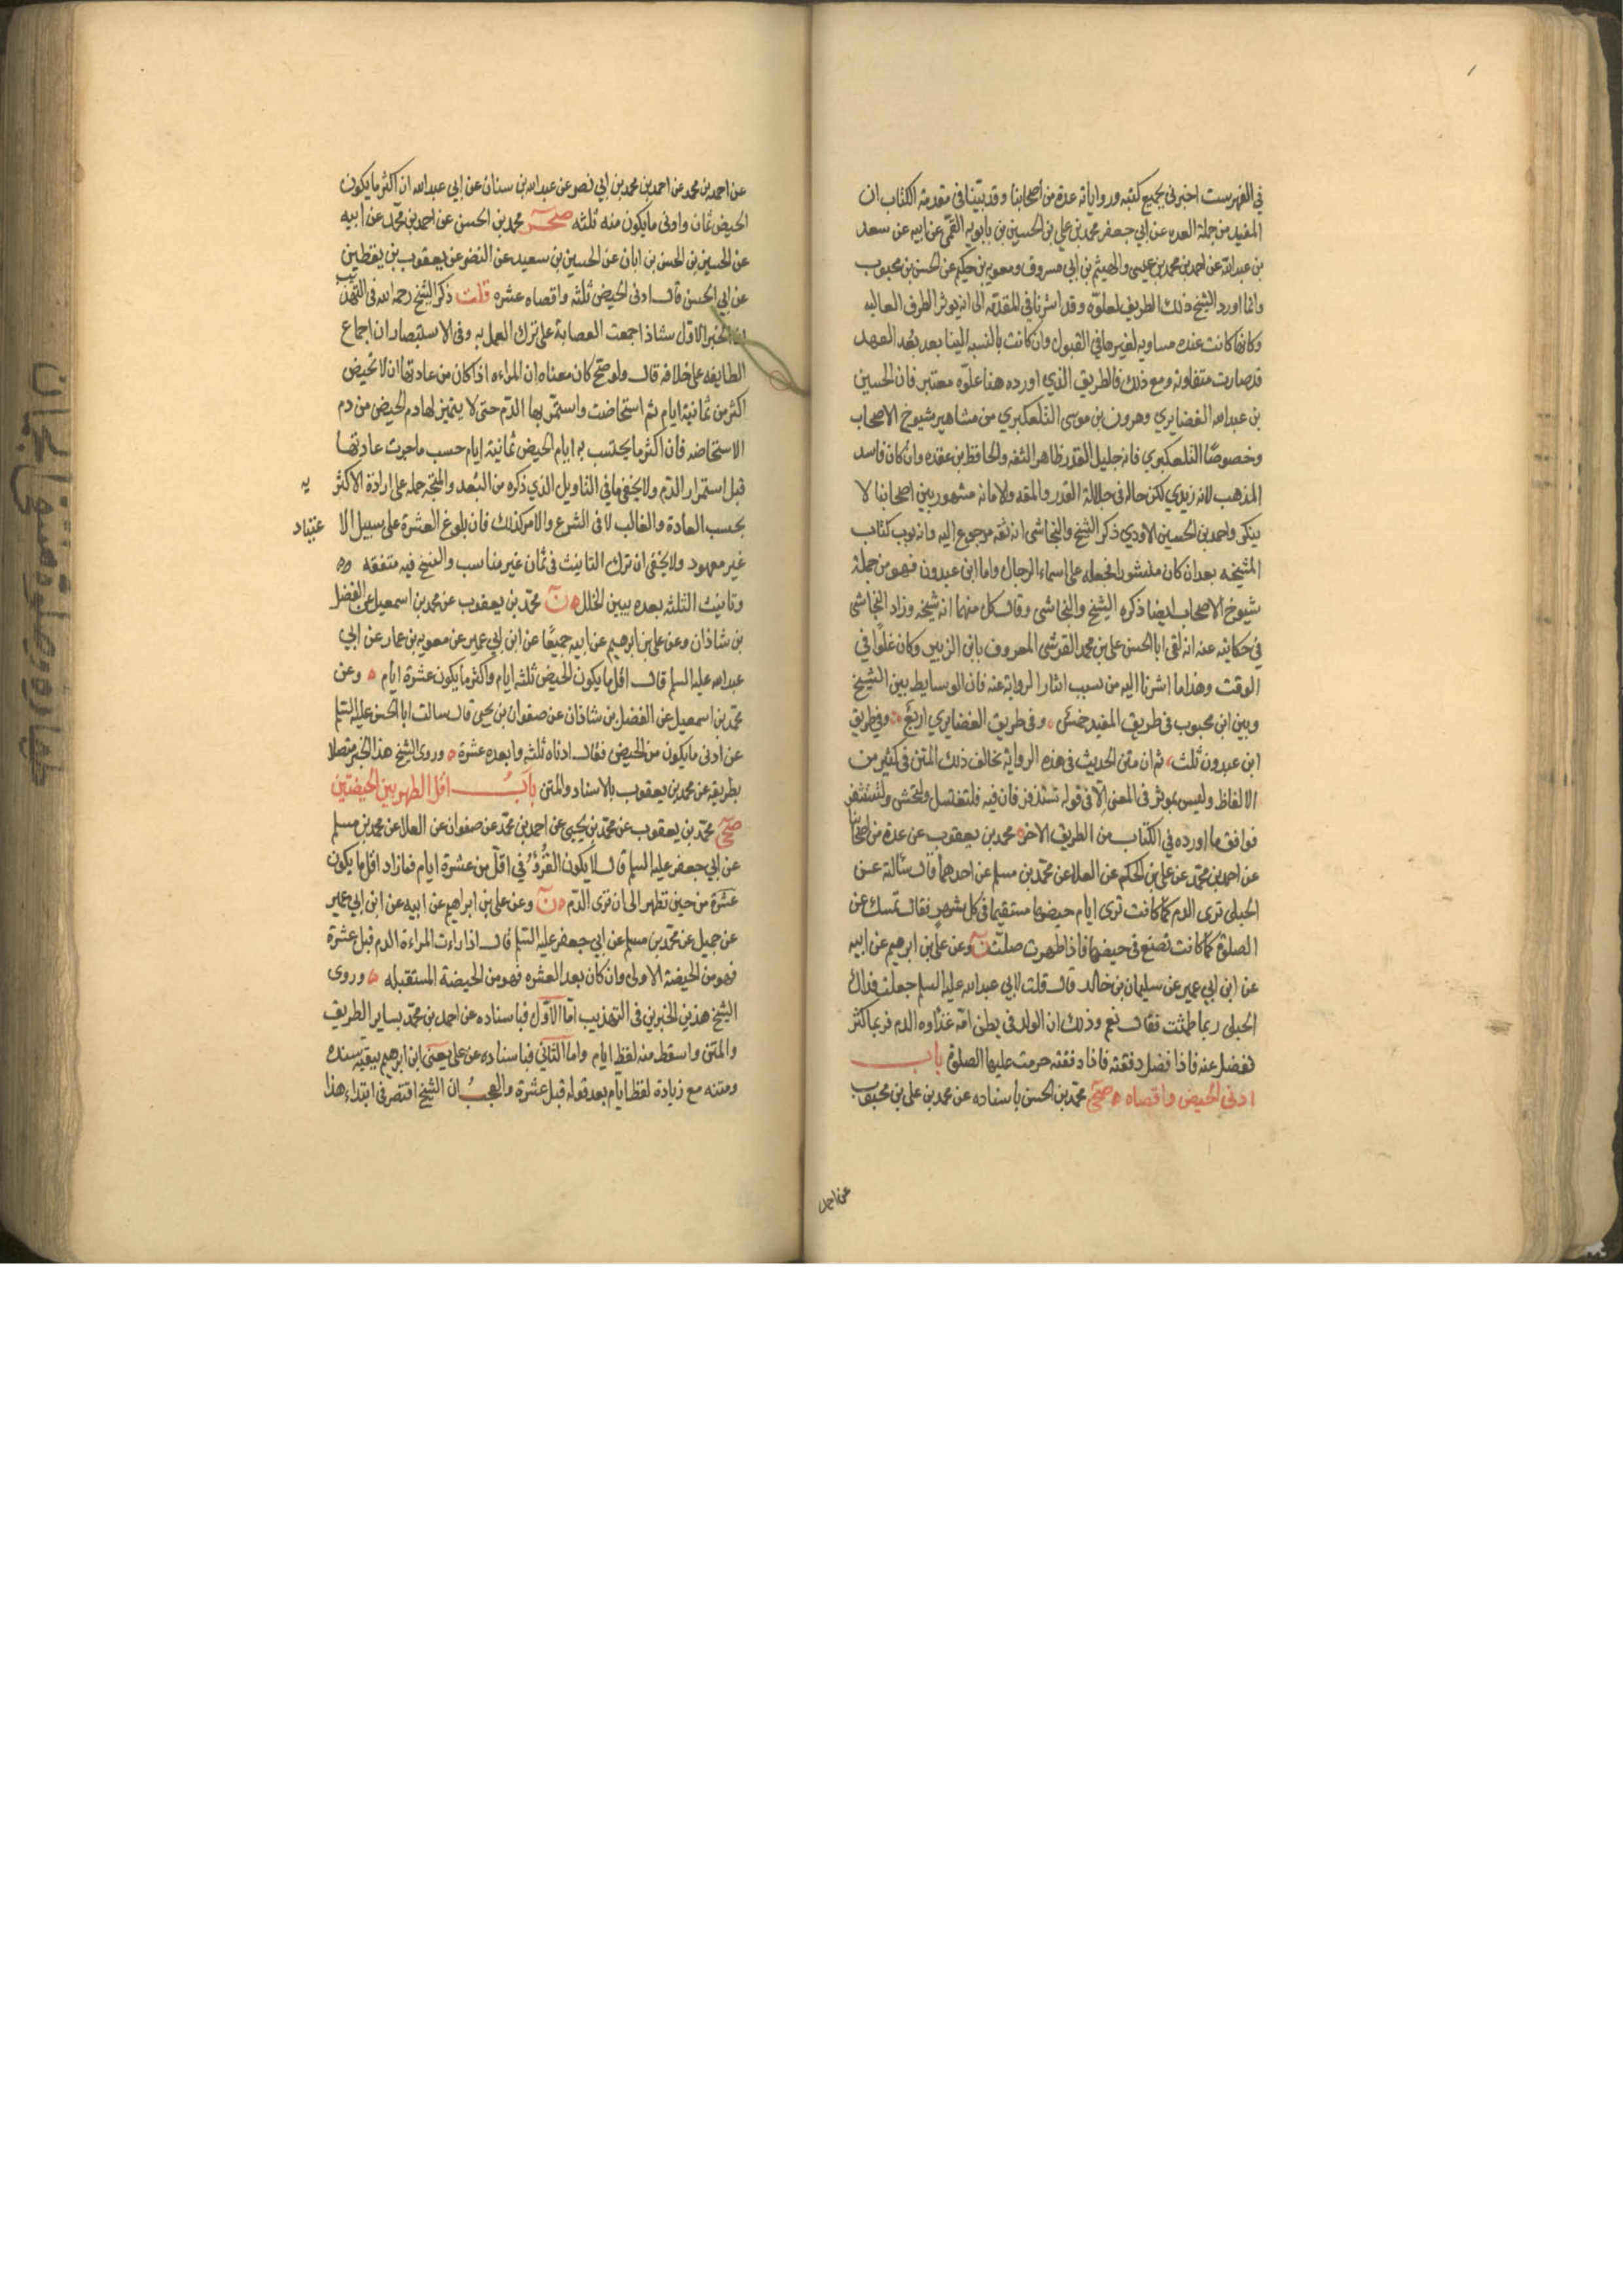 في الفهرست اخبرني بجميع كتبه ورواياته عدة من اصحابنا وقد بيّنا في مقدمة الكتاب ان
المفيد من جملة العده عن ابي جعفر محمد بن علي بن الحسين بن بابويه القمّي عن ابيه عن سعد
بن عبدالله عن احمد بن محمد بن عيسى والهيثم بن ابي مسروق ومعويه بن حكيم عن الحسن بن محبوب
وانما اورد الشيخ ذلك الطريق لعلوّه وقد اشرنا في المقدمه الى انه يوثر الطرق العاليه
وكانها كانت عنده مساويه لغيرها في القبول وان كانت بالنسبه الينا بعد بُعد العهد
قد صارت متفاوته ومع ذلك فالطريق الذي اورده هنا علوّه معتبر فان الحسين
بن عبدالله الغضايري وهرون بن موسى التلعكبري من مشاهير شيوخ الاصحاب
وخصوصًا التلعكبري فانه جليل القدر ظاهر الثقه والحافظ بن عقده وان كان فاسد
المذهب لانه زيدي لكن حاله في جلالة القدر والثقه والامانه مشهور بين اصحابنا لا
ينكر واحمد بن الحسين الاودي ذكر الشيخ والنجاشى انه ثقه مرجوع اليه وانه بوب كتاب
المشيخه بعد ان كان منشورا فجعله على اسماء الرجال واما ابن عبدون فهو من جملة
شيوخ الاصحاب ايضا ذكره الشيخ والنجاشى وقال كل منهما انه شيخه وزاد النجاشى
في حكايته عنه انه لقى ابا الحسن علي بن محمد القرشى المعروف بابن الزبير وكان غلوّا في
الوقت وهذا ما اشرنا اليه من سبب ايثار الرواية عنه فان الوسايط بين الشيخ
وبين ابن محبوب فى طريق المفيد خمس وفى طريق الغضايري اربع وفي طريق
ابن عبدون ثلث ثم ان متن الحديث فى هذه الرواية يخالف ذلك المتن فى كثير من
الالفاظ وليس بموثر فى المعنى الّا فى قوله تستذفر فان فيه فلتغتسل ولتحتش ولتستثفر
فوافق ما اورده في الكتاب من الطريق الاخر محمد بن يعقوب عن عدة من اصحابنا
عن احمد بن محمّد عن علي بن الحكم عن العلا عن محمّد بن مسلم عن احدهما قال سالته عن
الحبلى ترى الدم كما كانت ترى ايام حيضها مستقيما فى كل شهر فقال تمسك عن
الصلوة كما كانت تصنع فى حيضها فاذا طهرت صلّت ن وعن علي بن ابرهيم عن ابيه
عن ابن ابي عمير عن سليمان بن خالد قال قلت لابي عبدالله عليه السلم جعلت فداك
الحبلى ربما طمثت فقال نعم وذلك ان الولد فى بطن امّه غذاوه الدم فربما كثر
ففضل عنه فاذا فضل دفقته فاذا دفقته حرمت عليها الصلوة باب
ادنى الحيض واقصاه صحي محمّد بن الحسن باسناده عن محمد بن علي بن محبوب
عن احمد
عن احمد بن محمد عن احمد بن محمد بن ابي نصر عن عبدالله بن سنان عن ابي عبدالله ان اكثر ما يكون
الحيض ثمان وادنى ما يكون منه ثلثه صحر محمد بن الحسن عن احمد بن محمّد عن ابيه
عن الحسين بن الحسن بن ابان عن الحسين بن سعيد عن النضر عن يعقوب بن يقطين
عن ابي الحسن قال ادنى الحيض ثلثه واقصاه عشره قلت ذكر الشيخ رحمه الله فى التهذيب
ان الخبر الاول شاذ اجمعت العصابة على ترك العمل به وفى الاستبصار ان اجماع
الطايفه على خلافه قال ولو صحّ كان معناه ان المراءه اذا كان من عادتها ان لا تحيض
اكثر من ثمانية ايام ثم استحاضت واستمّر بها الدّم حتى لا يتميز لها دم الحيض من دم
الاستحاضه فان اكثر ما يحتسب به ايام الحيض ثمانية ايام حسب ما جرت عادتها
قبل استمرار الدّم ولا يخفى ما في التاويل الذي ذكره من البُعد والمتّجه حمله على ارادة الاكثريه
بحسب العادة والغالب لا فى الشرع والامر كذلك فان بلوغ العشرة على سبيل الاعتياد
غير معهود ولا يخفى ان ترك التانيث فى ثمان غير مناسب والنسخ فيه متفقه
وتانيث الثلثه بعده يبين الخلل ن محمّد بن يعقوب عن محمد بن اسمعيل عن الفضل
بن شاذان وعن علي بن ابرهيم عن ابيه جميعًا عن ابن ابي عمير عن معويه بن عمار عن ابي
عبدالله عليه السلم قال اقل ما يكون الحيض ثلثه ايام واكثر ما يكون عشرة ايام وعن
محمّد بن اسمعيل عن الفضل بن شاذان عن صفوان بن يحيى قال سالت ابا الحسن عليه السّلم
عن ادنى ما يكون من الحيض فقال ادناه ثلثه وابعده عشرة وروى الشيخ هذا الخبر متصلا
بطريقه عن محمد بن يعقوب بالاسناد والمتن باب اقل الطهر بين الحيضتين
صحي محمّد بن يعقوب عن محمّد بن يحيى عن احمد بن محمّد عن صفوان عن العلا عن محمد بن مسلم
عن ابي جعفر عليه السلم قال لا يكون القُرْؤُ في اقلّ من عشرة ايام فما زاد اقل ما يكون
عشرة من حين تطهر الى ان ترى الدّم ن وعن علي بن ابراهيم عن ابيه عن ابن ابي عمير
عن جميل عن محمّد بن مسلم عن ابي جعفر عليه السّلم قال اذا راءت المراءة الدم قبل عشرة
فهو من الحيضة الاولى وان كان بعد العشره فهو من الحيضة المستقبله وروى
الشيخ هذين الخبرين فى التهذيب امّا الاوّل فباسناده عن احمد بن محمّد بساير الطريق
والمتن واسقط منه لفظ ايام واما الثاني فباسناده عن علي يعنى ابن ابرهيم ببقيه سنده
ومتنه مع زيادة لفظ ايام بعد قوله قبل عشرة والعجب ان الشيخ اقتصر فى ابتداء هذا